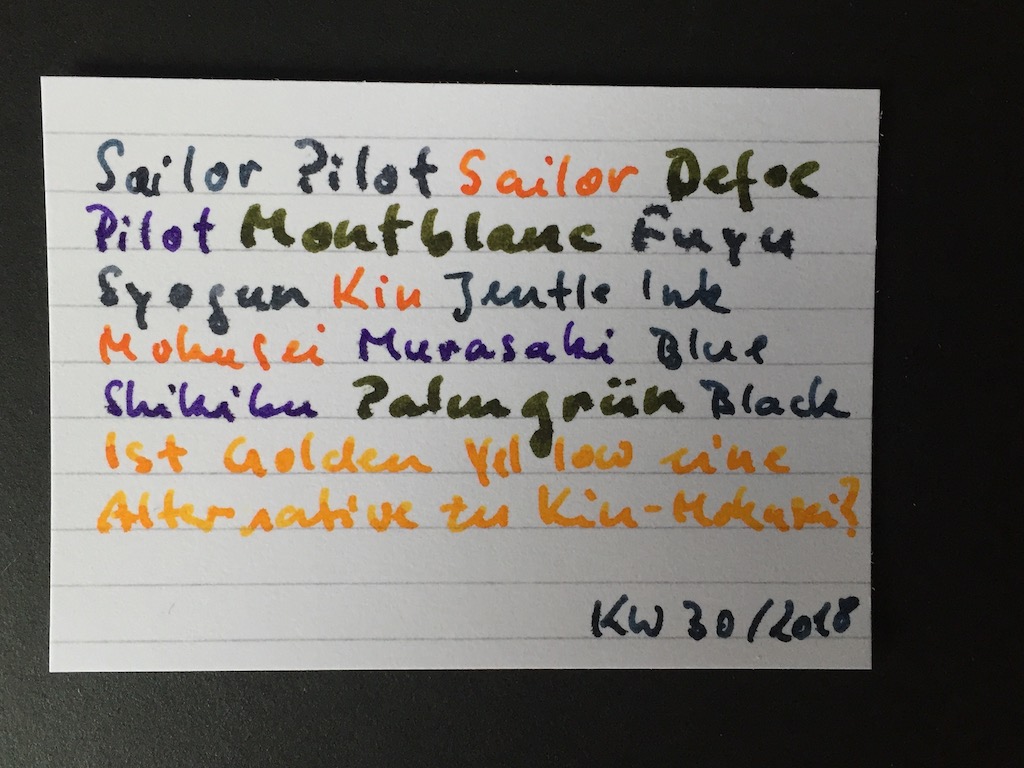 Sailor Pilot Sailor Defoe
Pilot Montblanc Fuyu
Syogun Kin Jentle Ink
Mokusei Murasaki Blue
Shikibu Palmgrün Black
Ist Golden Yellow eine
Alternative zu Kin-Mokusei?
KW 30/2018